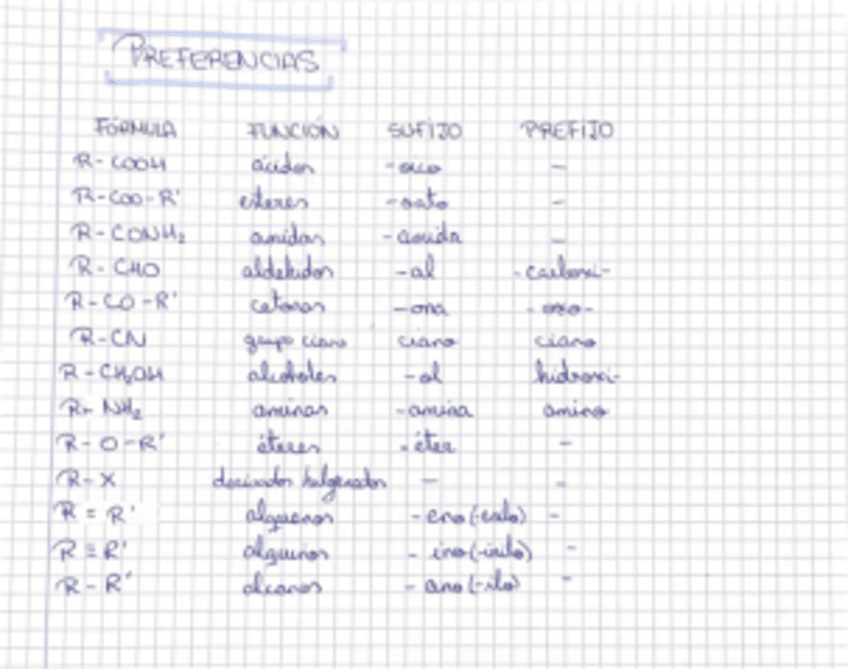 PREFERENCIAS
FÓRMULA FUNCIÓN SUFIJO PREFIJO
R-COOH ácidos -oico -
R-COO-R' esteres -oato -
R-CONH₂ amidas -amida -
R-CHO aldehidos -al -carboxi-
R-CO-R' cetonas -ona -oxo-
R-CN grupo ciano ciano ciano
R-CH₂OH alcoholes -ol hidroxi-
R-NH₂ aminas -amina amino
R-O-R' éteres -éter -
R-X derivados halgenados - -
R=R' alquenos -eno(-enilo) -
R≡R' alquinos -ino(-inilo) -
R-R' alcanos -ano(-ilo) -